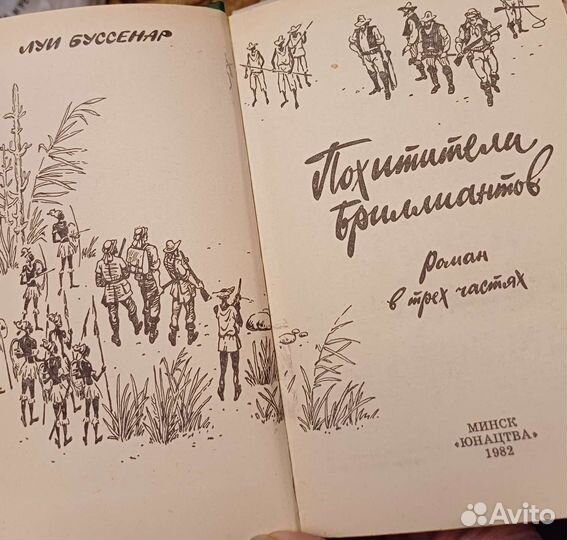 ЛУИ БУССЕНАР
Похитители
Бриллиантов
Роман
в трех частях
МИНСК
«ЮНАЦТВА»
1982
Avito